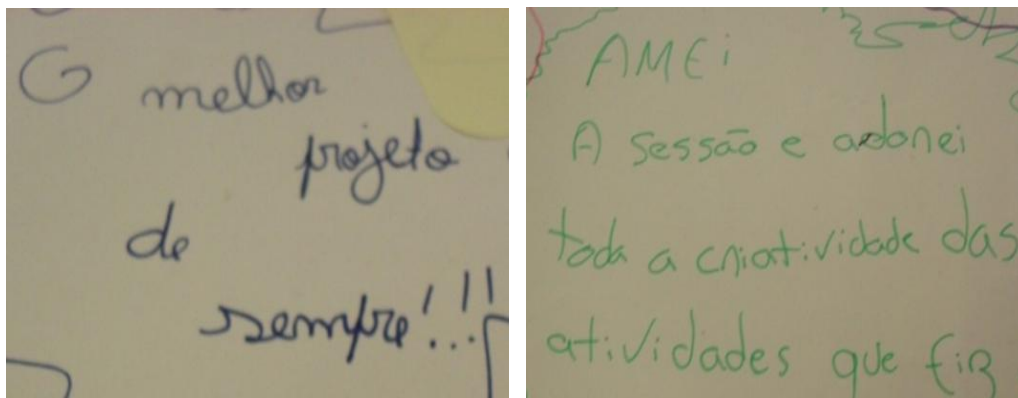 O melhor
projeto
de
sempre!!!
AMEi
A sessão e adorei
toda a criatividade das
atividades que fiz